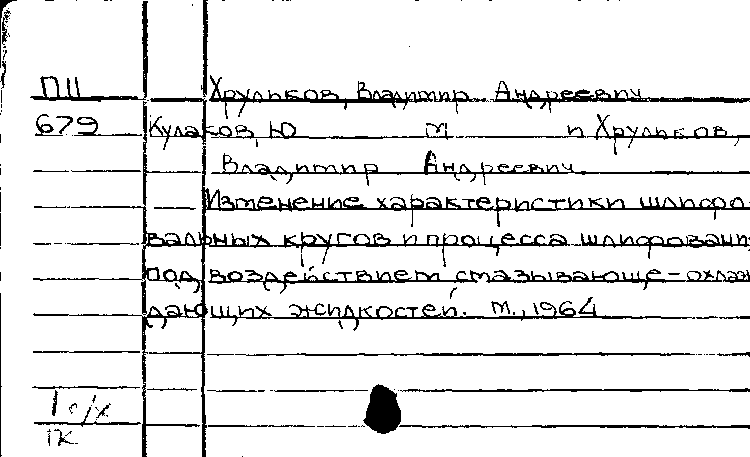 П11 Хрульков, Владимир Андреевич
679 Кулаков, Ю М и Хрульков,
Владимир Андреевич.
Изменение характеристики шлифо
вальных кругов и процесса шлифовани
под воздействием смазывающе-охлаж
дающих жидкостей. М., 1964
1 о/х
ПК